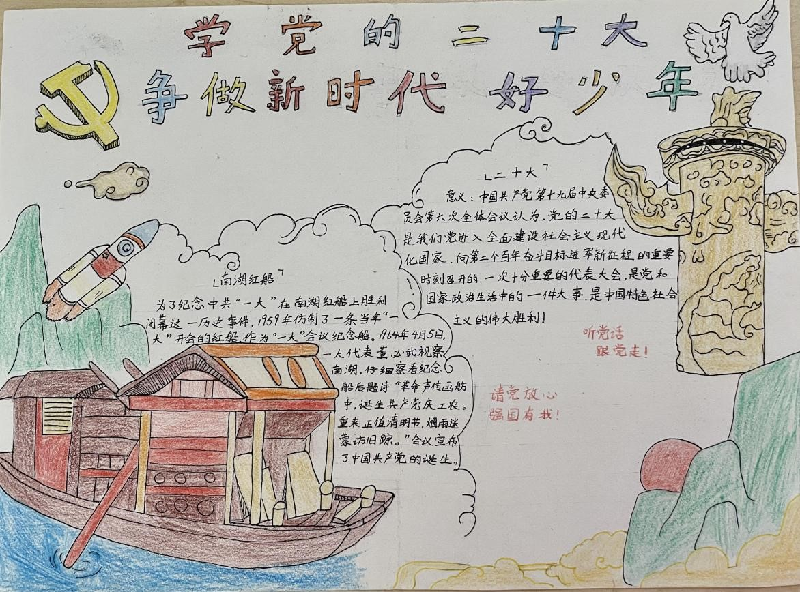 学党的二十大
争做新时代好少年
「二十大」
意义:中国共产党第十九届中央委
员会第六次全体会议认为,党的二十大
是我们党进入全面建设社会主义现代
化国家、向第二个百年奋斗目标进军新征程的重要
时刻召开的一次十分重要的代表大会,是党和
国家政治生活中的一件大事,是中国特色社会
主义的伟大胜利!
听党话
跟党走!
请党放心
强国有我!
「南湖红船」
为了纪念中共"一大"在南湖红船上胜利
闭幕这一历史事件,1959年仿制了一条当年"一
大"开会的红船,作为"一大"会议纪念船。1964年4月5日,
一大代表董必武视察
南湖,仔细察看纪念
船后题诗"革命声传画舫
中,诞生共产党庆工农。
重来正值清明节,烟雨迷
蒙访旧踪。"会议宣布
了中国共产党的诞生。